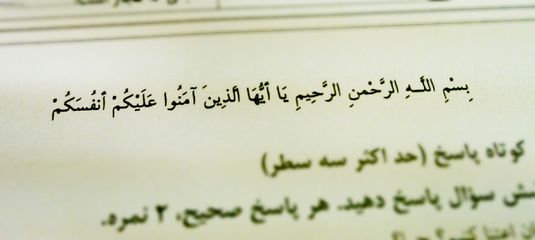 بِسْمِ اللَّـهِ الرَّحْمنِ الرَّحِيمِ يَا أَيُّهَا الَّذِينَ آمَنُوا عَلَيْكُمْ أَنفُسَكُمْ
کوتاه پاسخ (حد اکثر سه سطر)
سؤال پاسخ دهید. هر پاسخ صحیح، ۲ نمره.